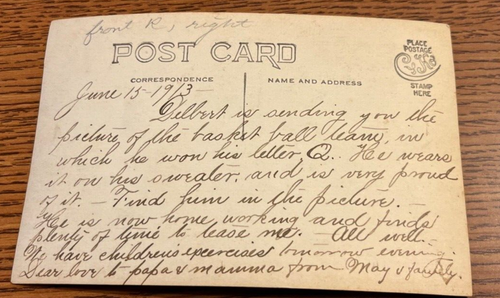 front R, right
POST CARD
PLACE
POSTAGE
STAMP
HERE
CORRESPONDENCE
NAME AND ADDRESS
June 15-1913-
Delbert is sending you the
picture of the basket ball team, in
which he won his letter, Q.. He wears
it on his sweater, and is very proud
of it. - Find him in the picture. -
He is now home, working and finds
plenty of time to tease me. - All well.
We have children's exercises tomorrow evening.
Dear love to papa & mamma from May & family.